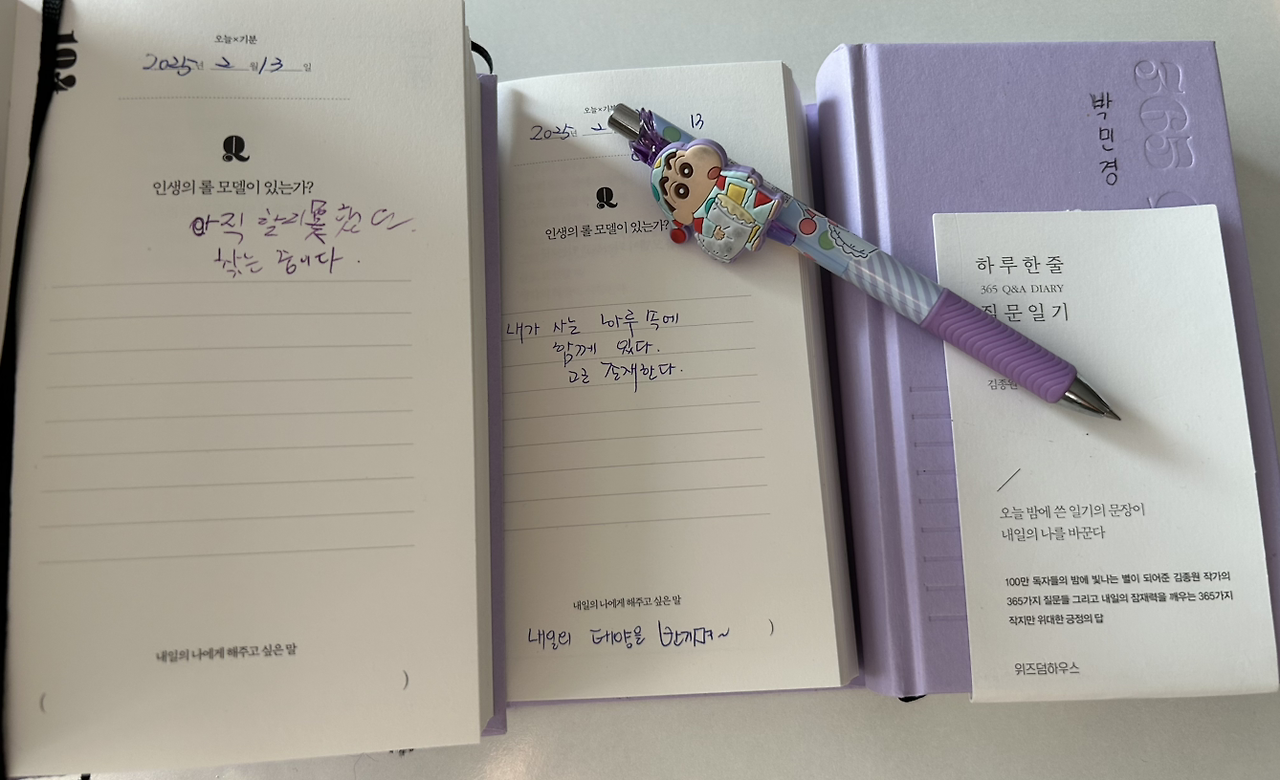 오늘×기분
2025년 2월 13일
Q
인생의 롤 모델이 있는가?
아직 했다.
찾는 중이다.
내일의 나에게 해주고 싶은 말
( )
오늘×기분
2025년 2 13
Q
인생의 롤 모델이 있는가?
내가 사는 하루 속에
함께 있다.
고로 존재한다.
내일의 나에게 해주고 싶은 말
내일의 태양을 )
365
박민경
하루한줄
365 Q&A DIARY
질문일기
김종원
오늘 밤에 쓴 일기의 문장이
내일의 나를 바꾼다
100만 독자들의 밤에 빛나는 별이 되어준 김종원 작가의
365가지 질문들 그리고 내일의 잠재력을 깨우는 365가지
작지만 위대한 긍정의 답
위즈덤하우스